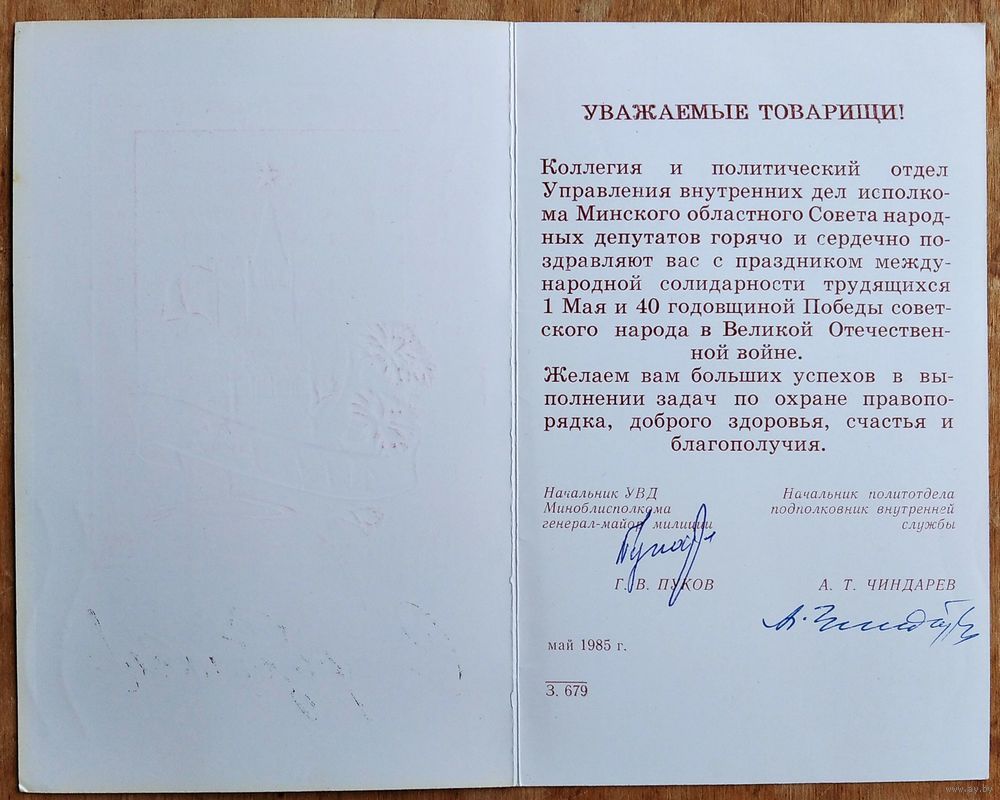 УВАЖАЕМЫЕ ТОВАРИЩИ!
Коллегия и политический отдел
Управления внутренних дел исполко-
ма Минского областного Совета народ-
ных депутатов горячо и сердечно по-
здравляют вас с праздником между-
народной солидарности трудящихся
1 Мая и 40 годовщиной Победы совет-
ского народа в Великой Отечествен-
ной войне.
Желаем вам больших успехов в вы-
полнении задач по охране правопо-
рядка, доброго здоровья, счастья и
благополучия.
Начальник УВД
Миноблисполкома
генерал-майор милиции
Г. В. ПУКОВ
Начальник политотдела
подполковник внутренней
службы
А. Т. ЧИНДАРЕВ
май 1985 г.
З. 679
www.ay.by